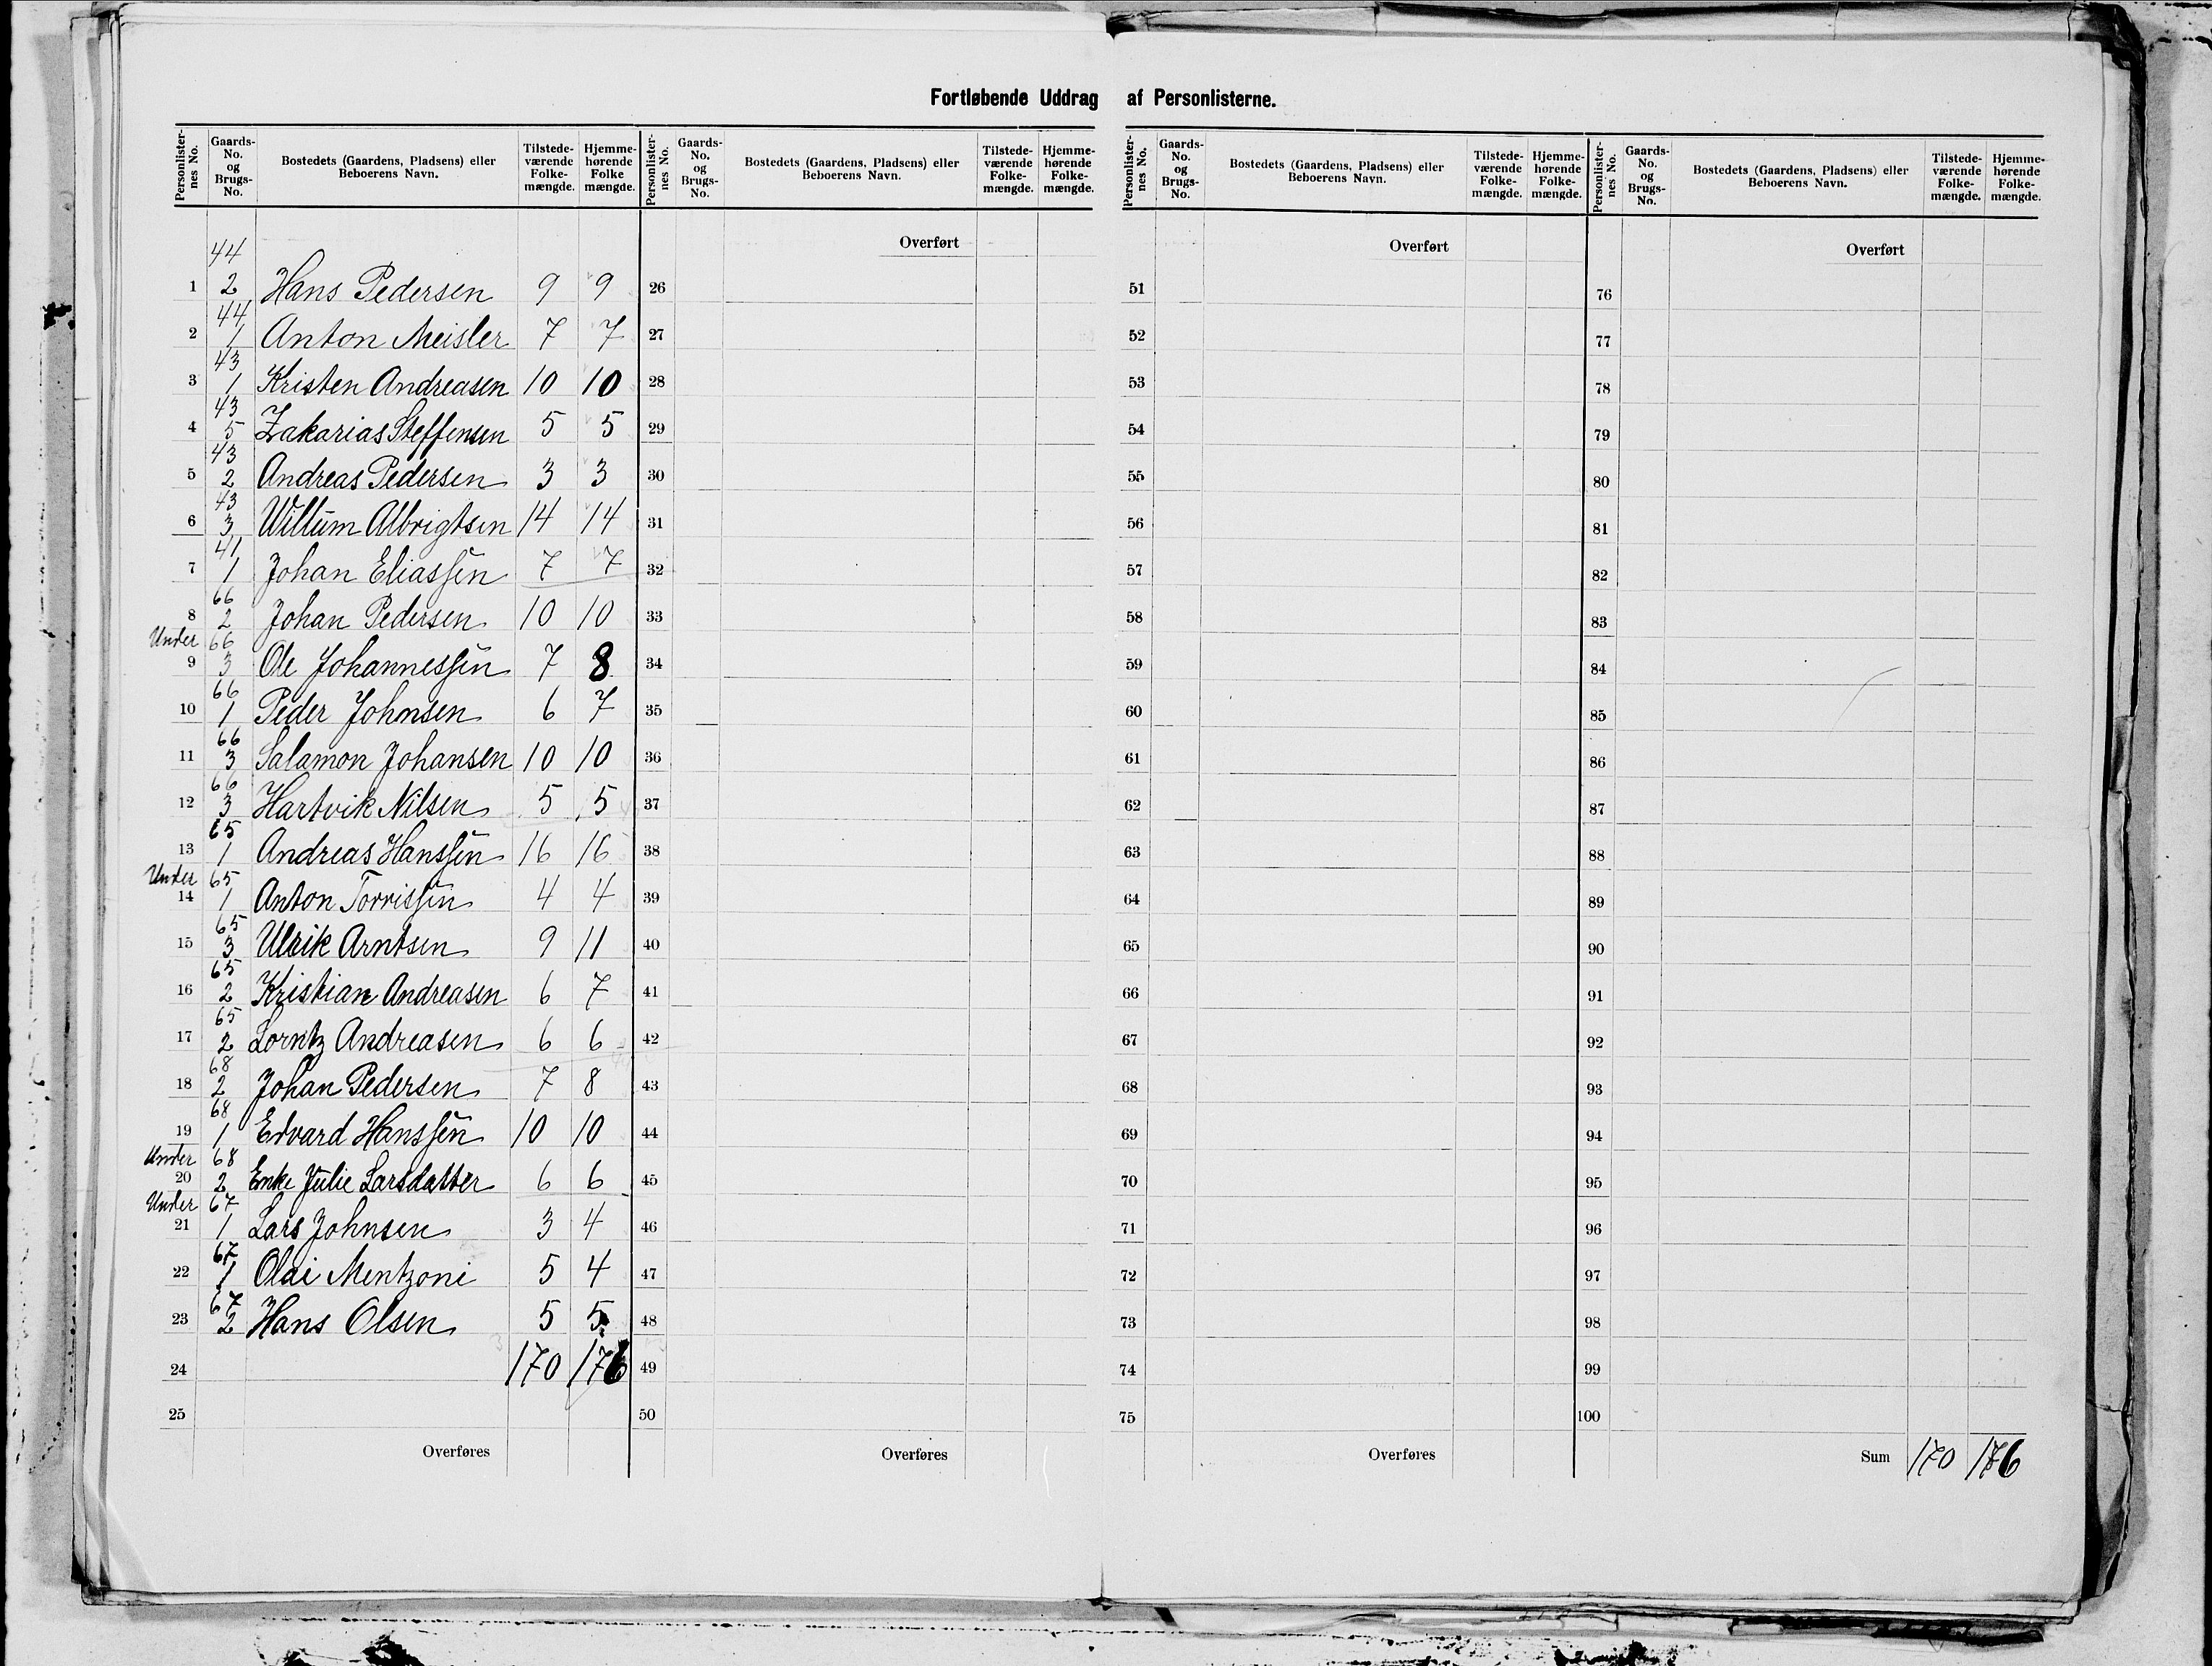 Fortløbende Uddrag af Personlisterne.
Personlisternes No. Gaards-No. og Brugs-No. Bostedets (Gaardens, Pladsens) eller Beboerens Navn. Tilstedeværende Folkemængde. Hjemmehørende Folke mængde. Personlisternes No. Gaards-No. og Brugs-No. Bostedets (Gaardens, Pladsens) eller Beboerens Navn. Tilstedeværende Folkemængde. Hjemmehørende Folkemængde. Personlisternes No. Gaards-No. og Brugs-No. Bostedets (Gaardens, Pladsens) eller Beboerens Navn. Tilstedeværende Folkemængde. Hjemmehørende Folkemængde. Personlisternes No. Gaards-No. og Brugs-No. Bostedets (Gaardens, Pladsens) eller Beboerens Navn. Tilstedeværende Folkemængde. Hjemmehørende Folkemængde.
Overført Overført Overført
44
1 2 Hans Pedersen 9 9 26 51 76
44
2 1 Anton Meisler 7 7 27 52 77
43
3 1 Kristen Andreasen 10 10 28 53 78
43
4 5 Zakarias Steffensen 5 5 29 54 79
43
5 2 Andreas Pedersen 3 3 30 55 80
43
6 3 Willum Albrigtsen 14 14 31 56 81
41
7 1 Johan Eliassen 7 7 32 57 82
66
8 2 Johan Pedersen 10 10 33 58 83
Under 66
9 3 Ole Johannessen 7 8 34 59 84
66
10 1 Peder Johnsen 6 7 35 60 85
66
11 3 Salamon Johansen 10 10 36 61 86
66
12 3 Hartvik Nilsen 5 5 37 62 87
65
13 1 Andreas Hanssen 16 16 38 63 88
Under 65
14 1 Anton Torrissen 4 4 39 64 89
65
15 3 Ulrik Arntsen 9 11 40 65 90
65
16 2 Kristian Andreasen 6 7 41 66 91
65
17 2 Lorntz Andreasen 6 6 42 67 92
68
18 2 Johan Pedersen 7 8 43 68 93
68
19 1 Edvard Hanssen 10 10 44 69 94
Under 68
20 2 Enke Julie Larsdatter 6 6 45 70 95
Under 67
21 1 Lars Johnsen 3 4 46 71 96
67
22 1 Olai Mentzoni 5 4 47 72 97
67
23 2 Hans Olsen 5 5 48 73 98
24 170 176 49 74 99
25 50 75 100
Overføres Overføres Overføres Sum 170 176